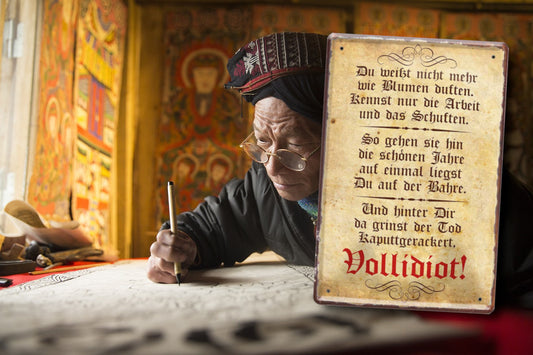 Du weißt nicht mehr
wie Blumen duften.
Kennst nur die Arbeit
und das Schuften.
So gehen sie hin
die schönen Jahre
auf einmal liegst
Du auf der Bahre.
Und hinter Dir
da grinst der Tod
Kaputtgerackert.
Vollidiot!